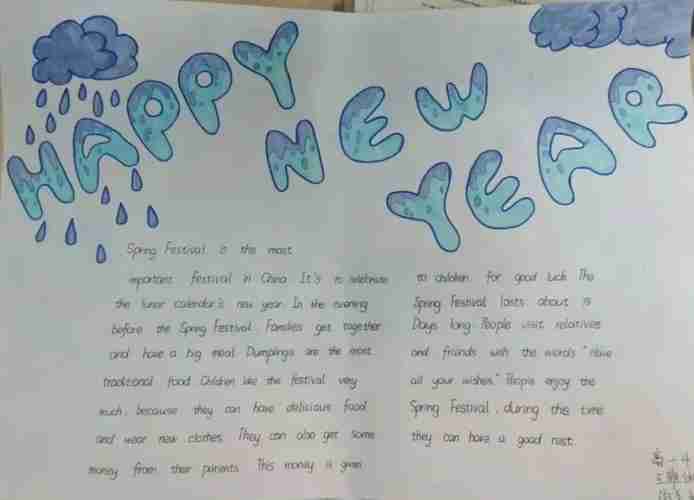 HAPPY
NEW
YEAR
Spring Festival is the most
important festival in China It's to celebrate
the lunar calendar's new year In the evening
before the Spring Festival Families get together
and have a big meal Dumplings are the most
traditional food Children like the festival very
much, because they can have delicious food
and wear new clothes. They can also get some
money from their parents This money is given
to children for good luck The
Spring Festival lasts about 15
Days long People visit relatives
and friends with the words "Have
all your wishes." People enjoy the
Spring Festival, during this time
they can have a good rest.